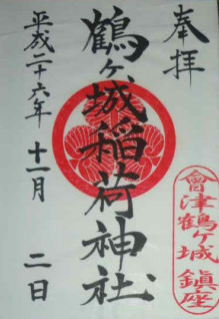 奉拝
會津鶴ヶ城鎮座
鶴ヶ城稲荷神社
平成二十六年十一月二日